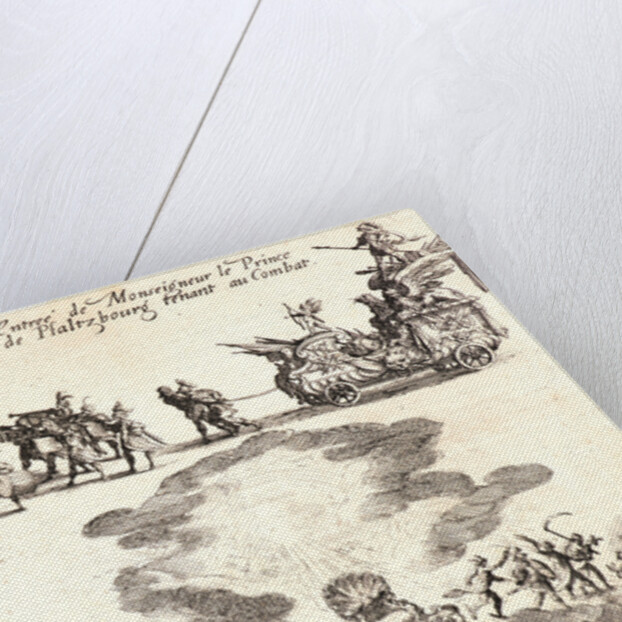 Entreé de Monseigneur le Prince
de Pfaltzbourg tenant au Combat.